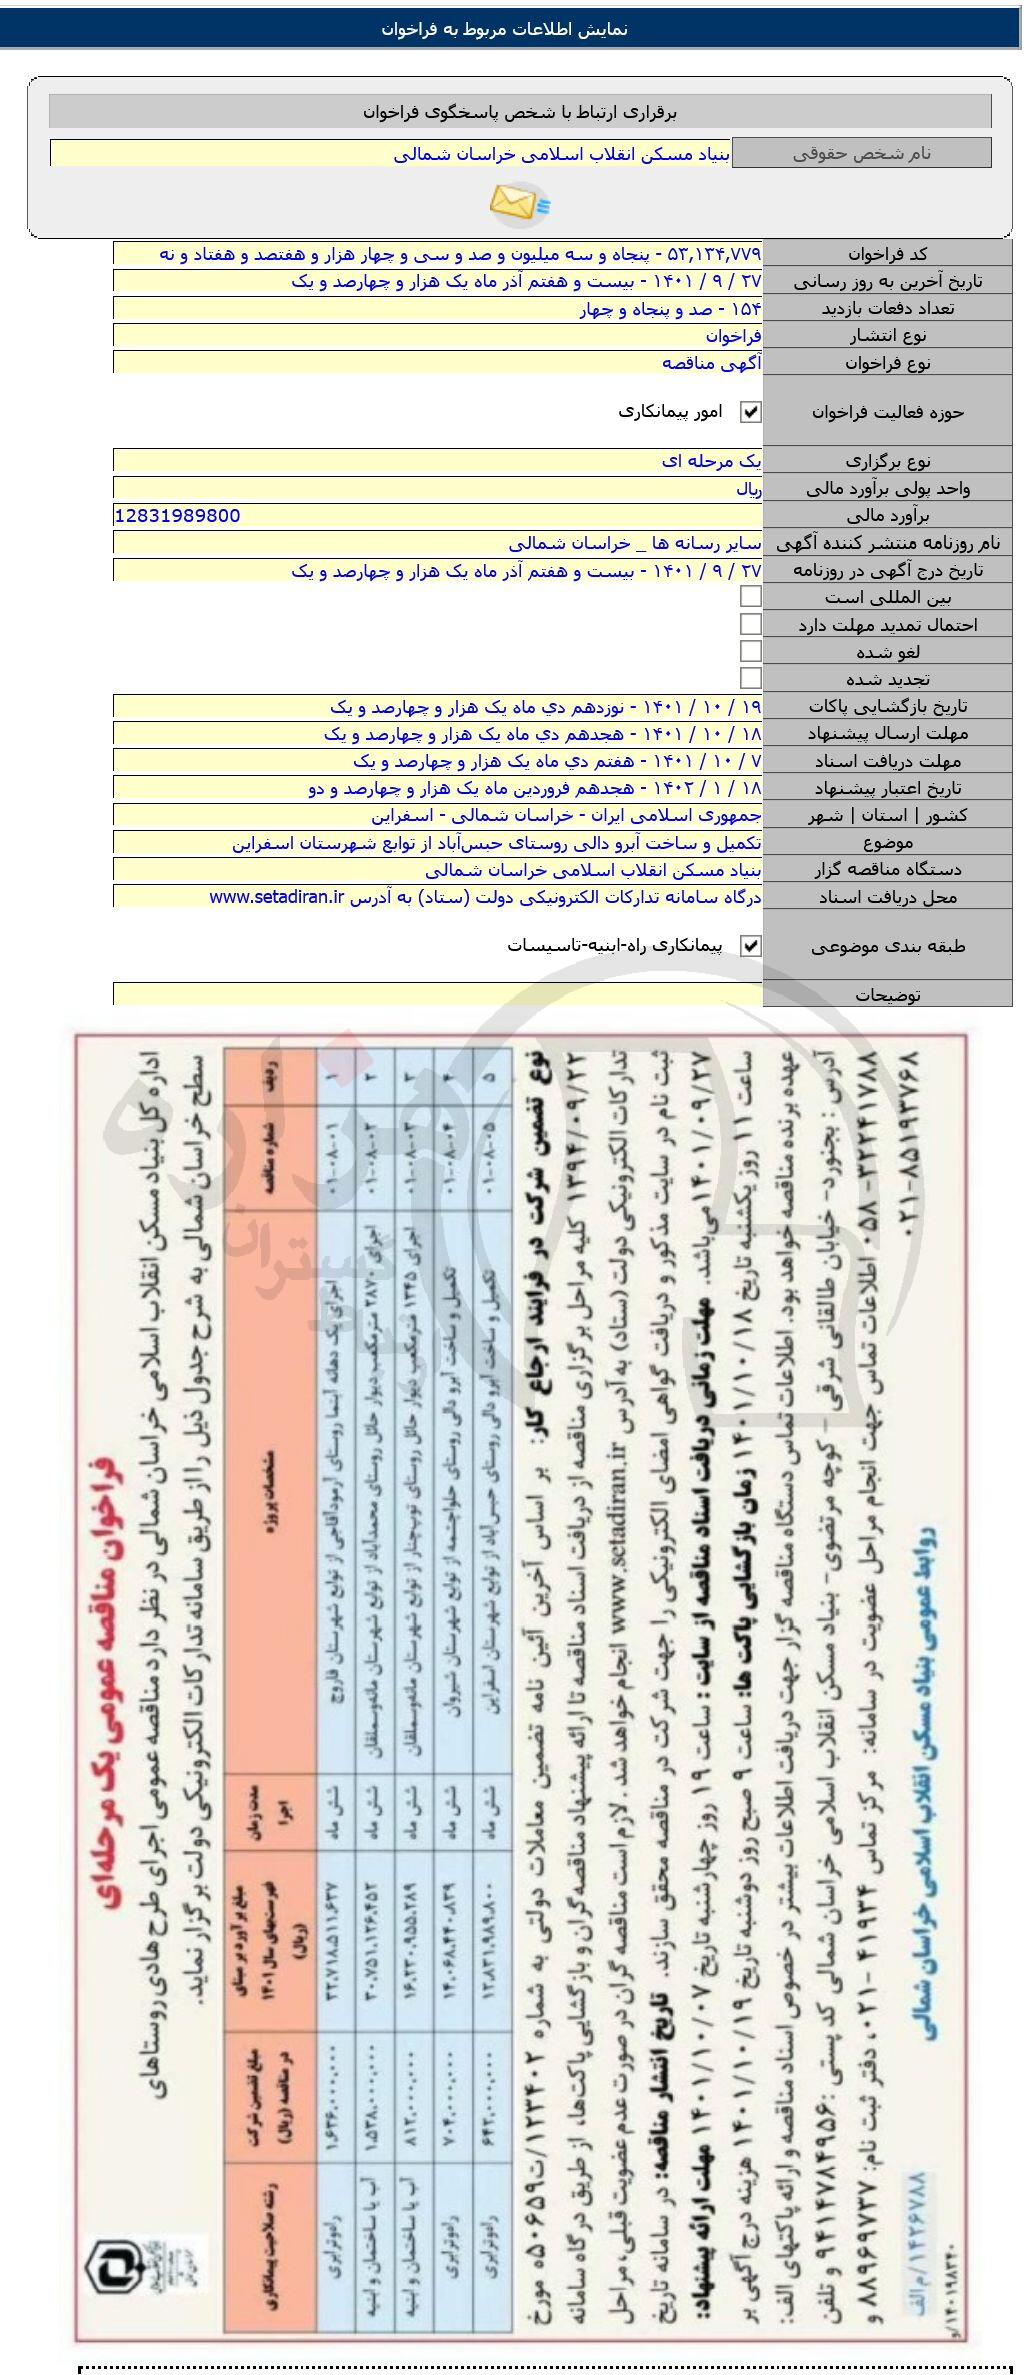 نمایش اطلاعات مربوط به فراخوان
برقراری ارتباط با شخص پاسخگوی فراخوان
نام شخص حقوقی بنیاد مسکن انقلاب اسلامی خراسان شمالی
کد فراخوان ۵۳,۱۳۴,۷۷۹ - پنجاه و سه میلیون و صد و سی و چهار هزار و هفتصد و هفتاد و نه
تاریخ آخرین به روز رسانی ۲۷ / ۹ / ۱۴۰۱ - بیست و هفتم آذر ماه یک هزار و چهارصد و یک
تعداد دفعات بازدید ۱۵۴ - صد و پنجاه و چهار
نوع انتشار فراخوان
نوع فراخوان آگهی مناقصه
حوزه فعالیت فراخوان امور پیمانکاری
نوع برگزاری یک مرحله ای
واحد پولی برآورد مالی ریال
برآورد مالی 12831989800
نام روزنامه منتشر کننده آگهی سایر رسانه ها _ خراسان شمالی
تاریخ درج آگهی در روزنامه ۲۷ / ۹ / ۱۴۰۱ - بیست و هفتم آذر ماه یک هزار و چهارصد و یک
بین المللی است
احتمال تمدید مهلت دارد
لغو شده
تجدید شده
تاریخ بازگشایی پاکات ۱۹ / ۱۰ / ۱۴۰۱ - نوزدهم دي ماه یک هزار و چهارصد و یک
مهلت ارسال پیشنهاد ۱۸ / ۱۰ / ۱۴۰۱ - هجدهم دي ماه یک هزار و چهارصد و یک
مهلت دریافت اسناد ۷ / ۱۰ / ۱۴۰۱ - هفتم دي ماه یک هزار و چهارصد و یک
تاریخ اعتبار پیشنهاد ۱۸ / ۱ / ۱۴۰۲ - هجدهم فروردین ماه یک هزار و چهارصد و دو
کشور | استان | شهر جمهوری اسلامی ایران - خراسان شمالی - اسفراین
موضوع تکمیل و ساخت آبرو دالی روستای حبس‌آباد از توابع شهرستان اسفراین
دستگاه مناقصه گزار بنیاد مسکن انقلاب اسلامی خراسان شمالی
محل دریافت اسناد درگاه سامانه تدارکات الکترونیکی دولت (ستاد) به آدرس www.setadiran.ir
طبقه بندی موضوعی پیمانکاری راه-ابنیه-تاسیسات
توضیحات
فراخوان مناقصه عمومی یک مرحله‌ای
اداره کل بنیاد مسکن انقلاب اسلامی خراسان شمالی در نظر دارد مناقصه عمومی اجرای طرح هادی روستاهای
سطح خراسان شمالی به شرح جدول ذیل را از طریق سامانه تدارکات الکترونیکی دولت برگزار نماید.
ردیف شماره مناقصه مشخصات پروژه مدت زمان اجرا مبلغ برآورد بر مبنای فهرست‌بهای سال ۱۴۰۱ (ریال) مبلغ تضمین شرکت در مناقصه (ریال) رشته صلاحیت پیمانکاری
۱ ۰۱-۰۸-۰۱ اجرای یک دهانه آبنما روستای آرموداقاجی از توابع شهرستان فاروج شش ماه ۳۲.۷۱۸.۵۱۱.۶۳۷ ۱.۶۳۶.۰۰۰.۰۰۰ راه‌وترابری
۲ ۰۱-۰۸-۰۲ اجرای ۲۸۷۰ مترمکعب دیوار حائل روستای محمدآباد از توابع شهرستان مانه‌وسملقان شش ماه ۳۰.۷۵۱.۱۲۶.۴۵۲ ۱.۵۳۸.۰۰۰.۰۰۰ آب یا ساختمان و ابنیه
۳ ۰۱-۰۸-۰۳ اجرای ۱۳۴۵ مترمکعب دیوار حائل روستای توپ‌چنار از توابع شهرستان مانه‌وسملقان شش ماه ۱۶.۲۳۰.۹۵۵.۲۸۹ ۸۱۲.۰۰۰.۰۰۰ آب یا ساختمان و ابنیه
۴ ۰۱-۰۸-۰۴ تکمیل و ساخت آبرو دالی روستای حلواچشمه از توابع شهرستان شیروان شش ماه ۱۴.۰۶۸.۴۴۰.۸۳۹ ۷۰۴.۰۰۰.۰۰۰ راه‌وترابری
۵ ۰۱-۰۸-۰۵ تکمیل و ساخت آبرو دالی روستای حبس‌آباد از توابع شهرستان اسفراین شش ماه ۱۲.۸۳۱.۹۸۹.۸۰۰ ۶۴۲.۰۰۰.۰۰۰ راه‌وترابری
نوع تضمین شرکت در فرایند ارجاع کار: بر اساس آخرین آئین نامه تضمین معاملات دولتی به شماره ۱۲۳۴۰۲/ت۵۰۶۵۹ه مورخ
۱۳۹۴/۰۹/۲۲ کلیه مراحل برگزاری مناقصه از دریافت اسناد مناقصه تا ارائه پیشنهاد مناقصه‌گران و بازگشایی پاکت‌ها، از طریق درگاه سامانه
تدارکات الکترونیکی دولت (ستاد) به آدرس www.setadiran.ir انجام خواهد شد. لازم است مناقصه گران در صورت عدم عضویت قبلی، مراحل
ثبت نام در سایت مذکور و دریافت گواهی امضای الکترونیکی را جهت شرکت در مناقصه محقق سازند. تاریخ انتشار مناقصه: در سامانه تاریخ
۱۴۰۱/۰۹/۲۷ می‌باشد. مهلت زمانی دریافت اسناد مناقصه از سایت : ساعت ۱۹ روز چهارشنبه تاریخ ۱۴۰۱/۱۰/۰۷ مهلت ارائه پیشنهاد:
ساعت ۱۱ روز یکشنبه تاریخ ۱۴۰۱/۱۰/۱۸ زمان بازگشایی پاکت ها: ساعت ۹ صبح روز دوشنبه تاریخ ۱۴۰۱/۱۰/۱۹ هزینه درج آگهی بر
عهده برنده مناقصه خواهد بود. اطلاعات تماس دستگاه مناقصه گزار جهت دریافت اطلاعات بیشتر در خصوص اسناد مناقصه و ارائه پاکتهای الف:
آدرس : بجنورد- خیابان طالقانی شرقی – کوچه مرتضوی- بنیاد مسکن انقلاب اسلامی خراسان شمالی کد پستی :۹۴۱۴۷۸۴۹۵۶ و تلفن
۳۲۲۴۱۷۸۸-۰۵۸ اطلاعات تماس جهت انجام مراحل عضویت در سامانه: مرکز تماس ۴۱۹۳۴-۰۲۱، دفتر ثبت نام: ۸۸۹۶۹۷۳۷ و
۰۲۱-۸۵۱۹۳۷۶۸
روابط عمومی بنیاد مسکن انقلاب اسلامی خراسان شمالی
۱۴۲۶۷۸۸ / م الف
۱۴۰۱۹۸۳۴۰/و
هزاره